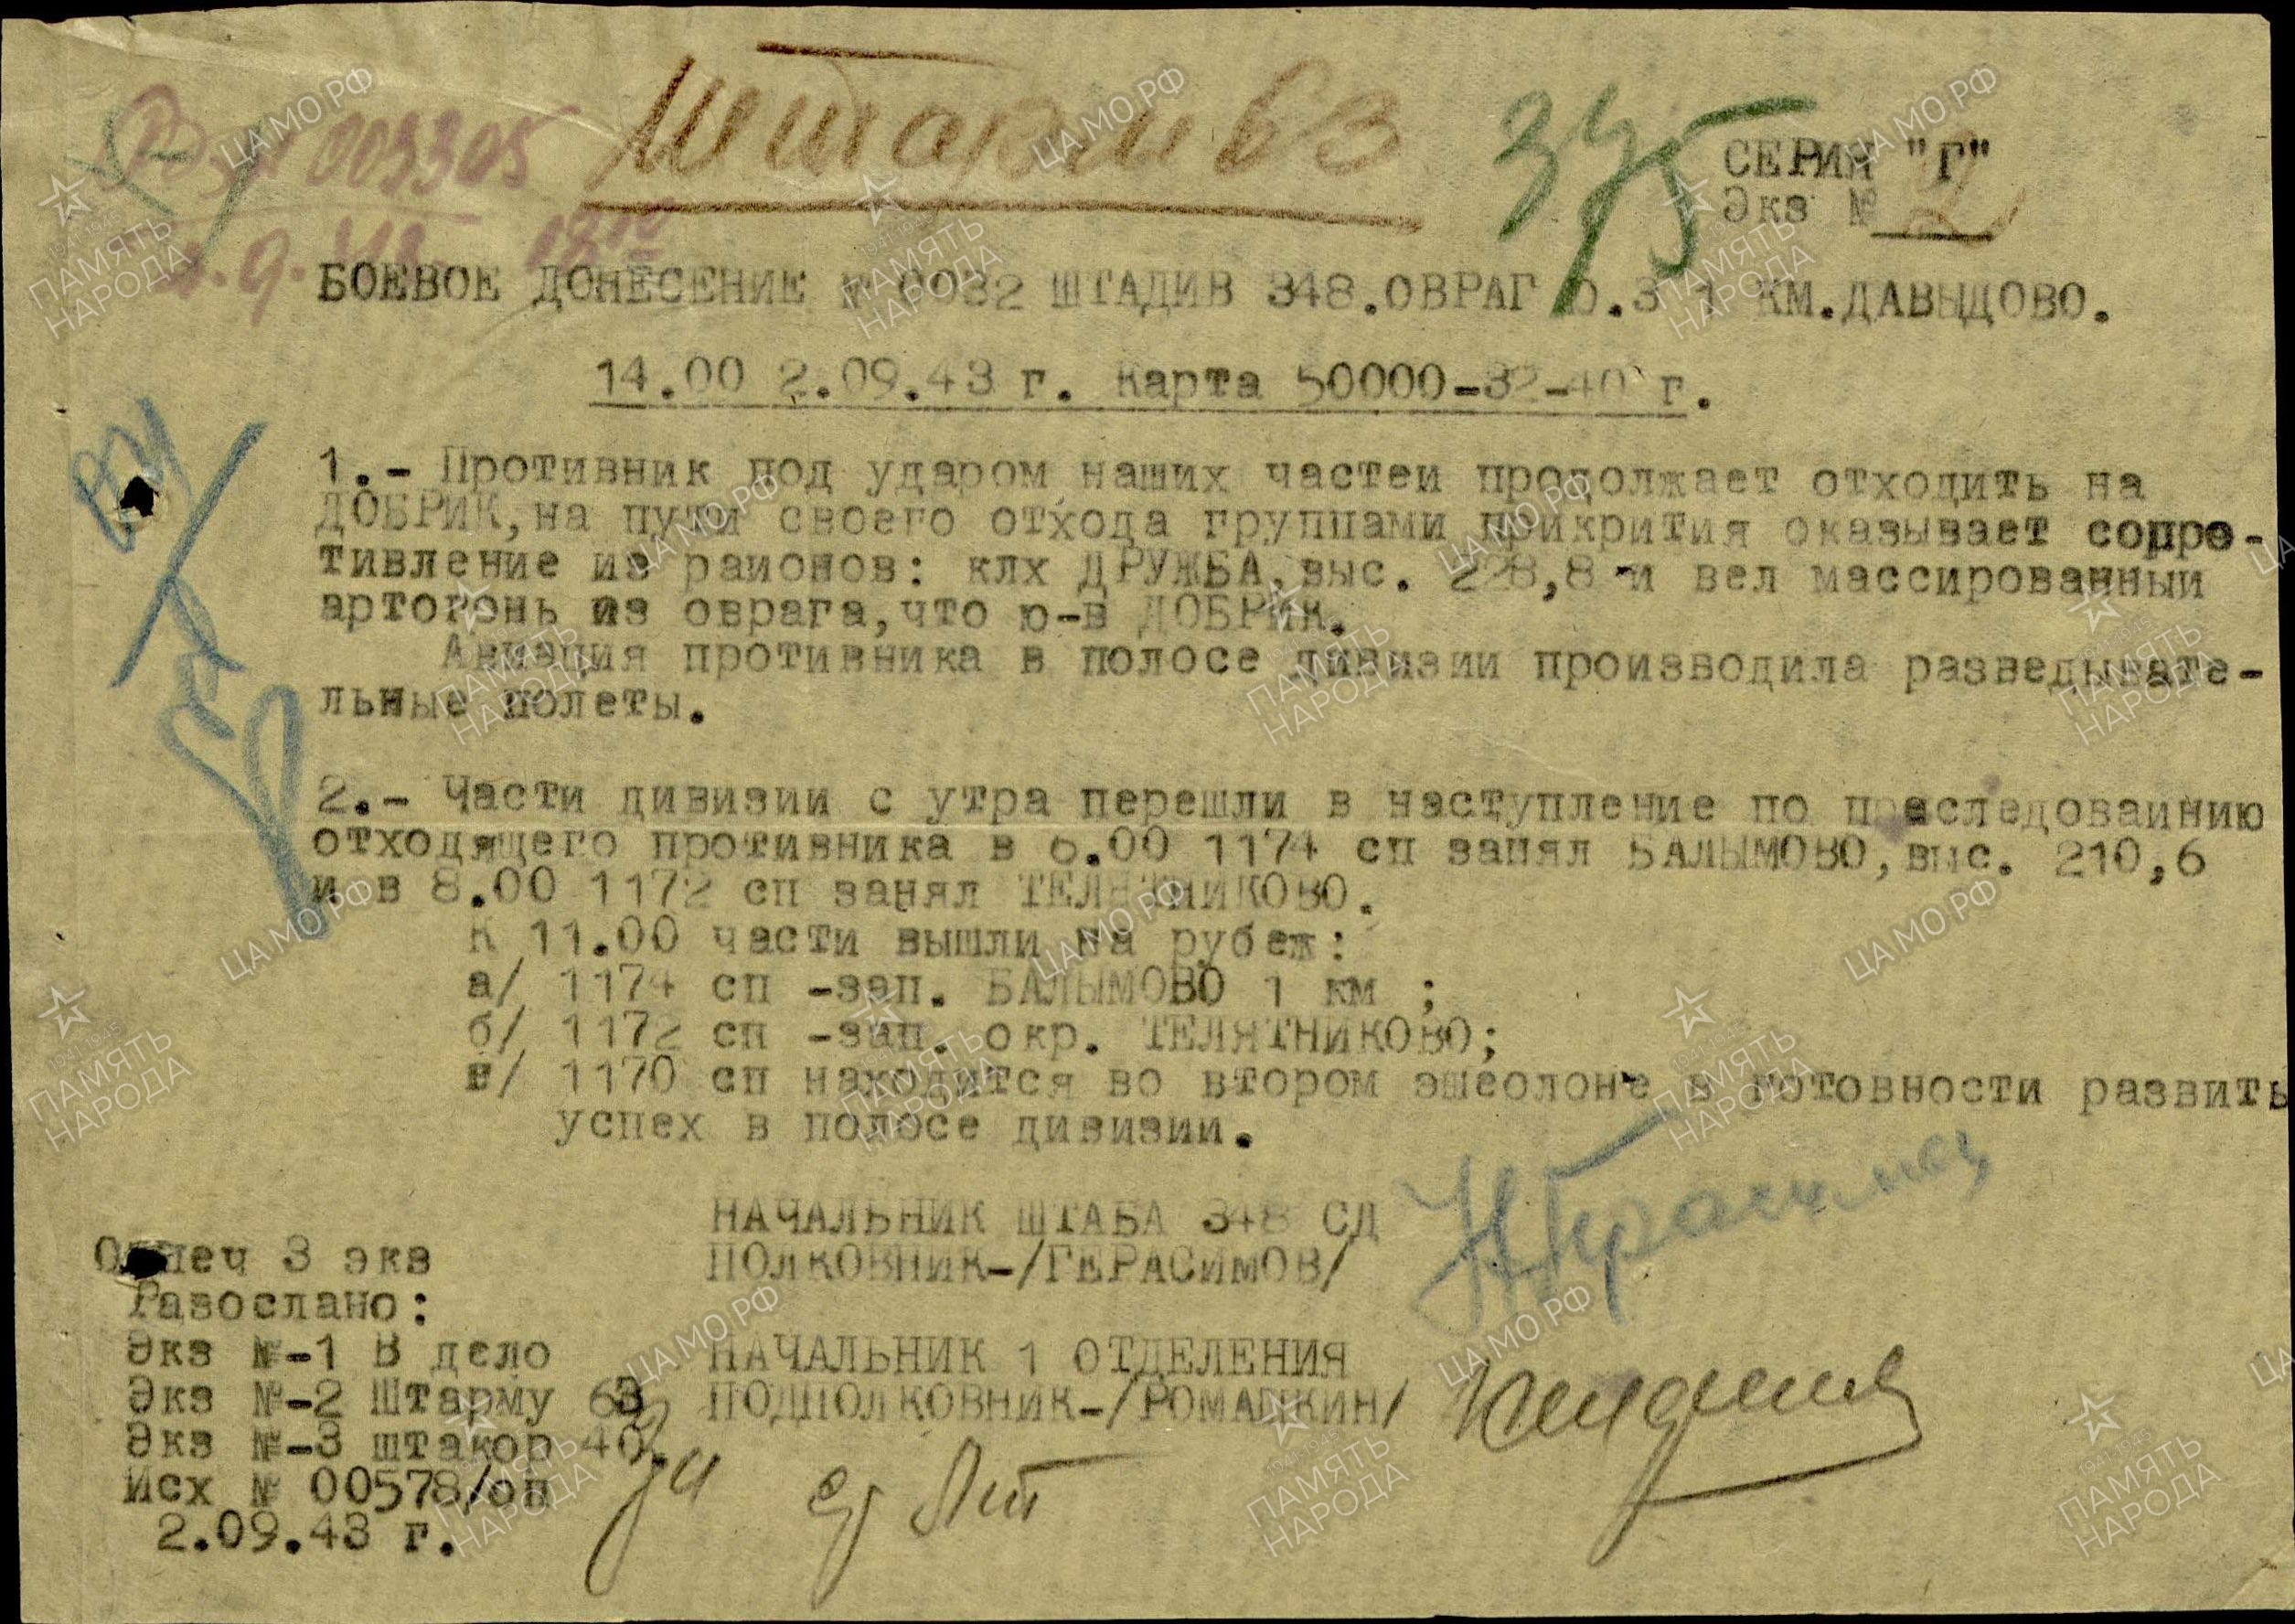 Штарм 63
375
003305
СЕРИЯ "Г"
Экз № 2
БОЕВОЕ ДОНЕСЕНИЕ № 0032 ШТАДИВ 348.ОВРАГ КМ.ДАВЫДОВО.
14.00 2.09.43 г. Карта 50000-32-40 г.
1.- Противник под ударом наших частей продолжает отходить на
ДОБРИК, на пути своего отхода группами прикрития оказывает сопро-
тивление из районов: клх ДРУЖБА, выс. 228,8 и вел массированный
артогонь из оврага,что ю-в ДОБРИК.
Авиация противника в полосе дивизии производила разведывате-
льные полеты.
2.- Части дивизии с утра перешли в наступление по преследоваинию
отходящего противника в 6.00 1174 сп занял БАЛЫМОВО, выс. 210,6
и в 8.00 1172 сп занял ТЕЛЯТНИКОВО.
К 11.00 части вышли на рубеж:
а/ 1174 сп -зап. БАЛЫМОВО 1 км ;
б/ 1172 сп -зап. окр. ТЕЛЯТНИКОВО;
в/ 1170 сп находится во втором эшеолоне в готовности развить
успех в полосе дивизии.
НАЧАЛЬНИК ШТАБА 348 СД
ПОЛКОВНИК-/ГЕРАСИМОВ/
НАЧАЛЬНИК 1 ОТДЕЛЕНИЯ
ПОДПОЛКОВНИК-/РОМАШКИН/
Отпеч 3 экз
Разослано:
Экз №-1 В дело
Экз №-2 Штарму 63
Экз №-3 штакор 40
Исх № 00578/оп
2.09.43 г.
ЦА МО РФ
1941-1945
ПАМЯТЬ
НАРОДА